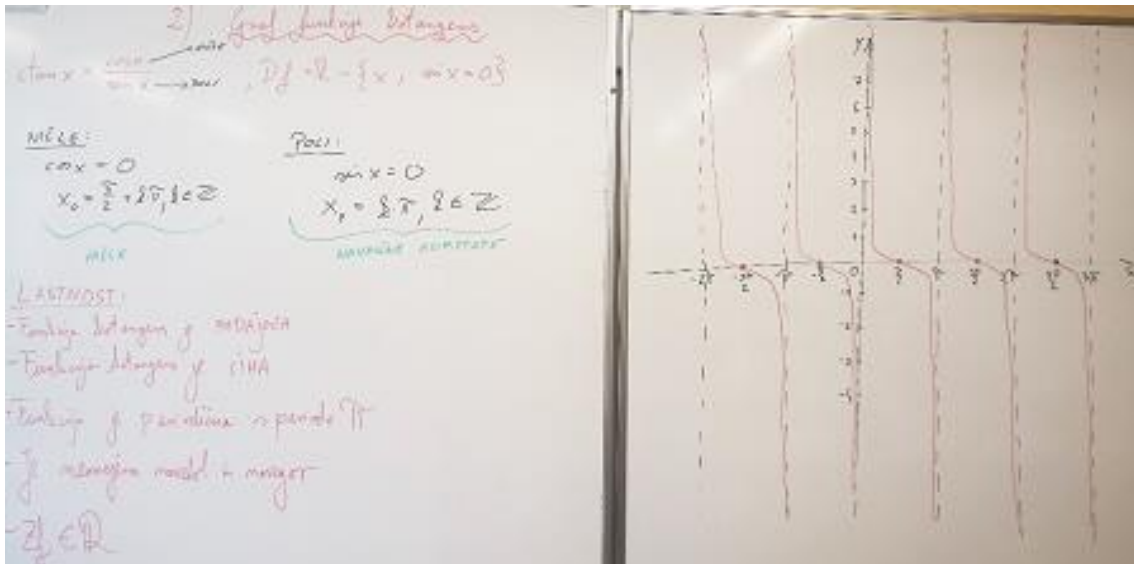 2) Graf funkcije kotangens
ctan x = cos x / sin x , Df = R - {x, sin x = 0}
NIČLE:
cos x = 0
x₀ = π/2 + kπ, k ∈ Z
NIČLE
POLI:
sin x = 0
xₚ = kπ, k ∈ Z
NAVPIČNE ASIMPTOTE
LASTNOSTI:
- Funkcija kotangens je PADAJOČA
- Funkcija kotangens je LIHA
- Funkcija je periodična s periodo π
- Je neomejena navzdol in navzgor
- Zf ∈ R
y
0